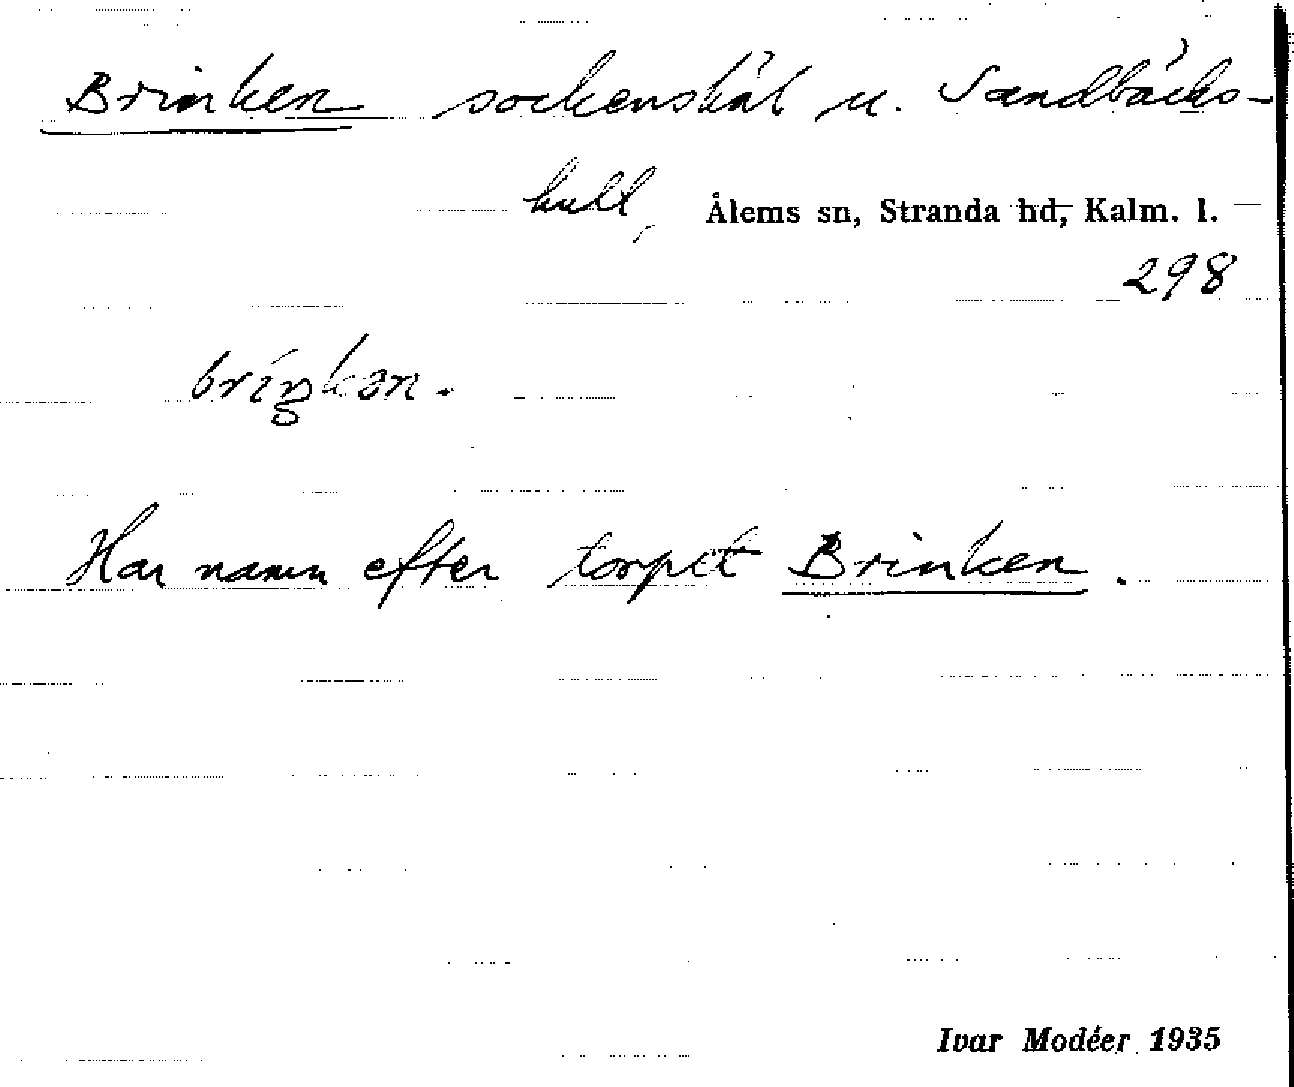 Brinken sockenskåt u. Sandbäcks-
hult, Ålems sn, Stranda hd, Kalm. l.
298
briŋkən.
Har namn efter torpet Brinken.
Ivar Modéer 1935